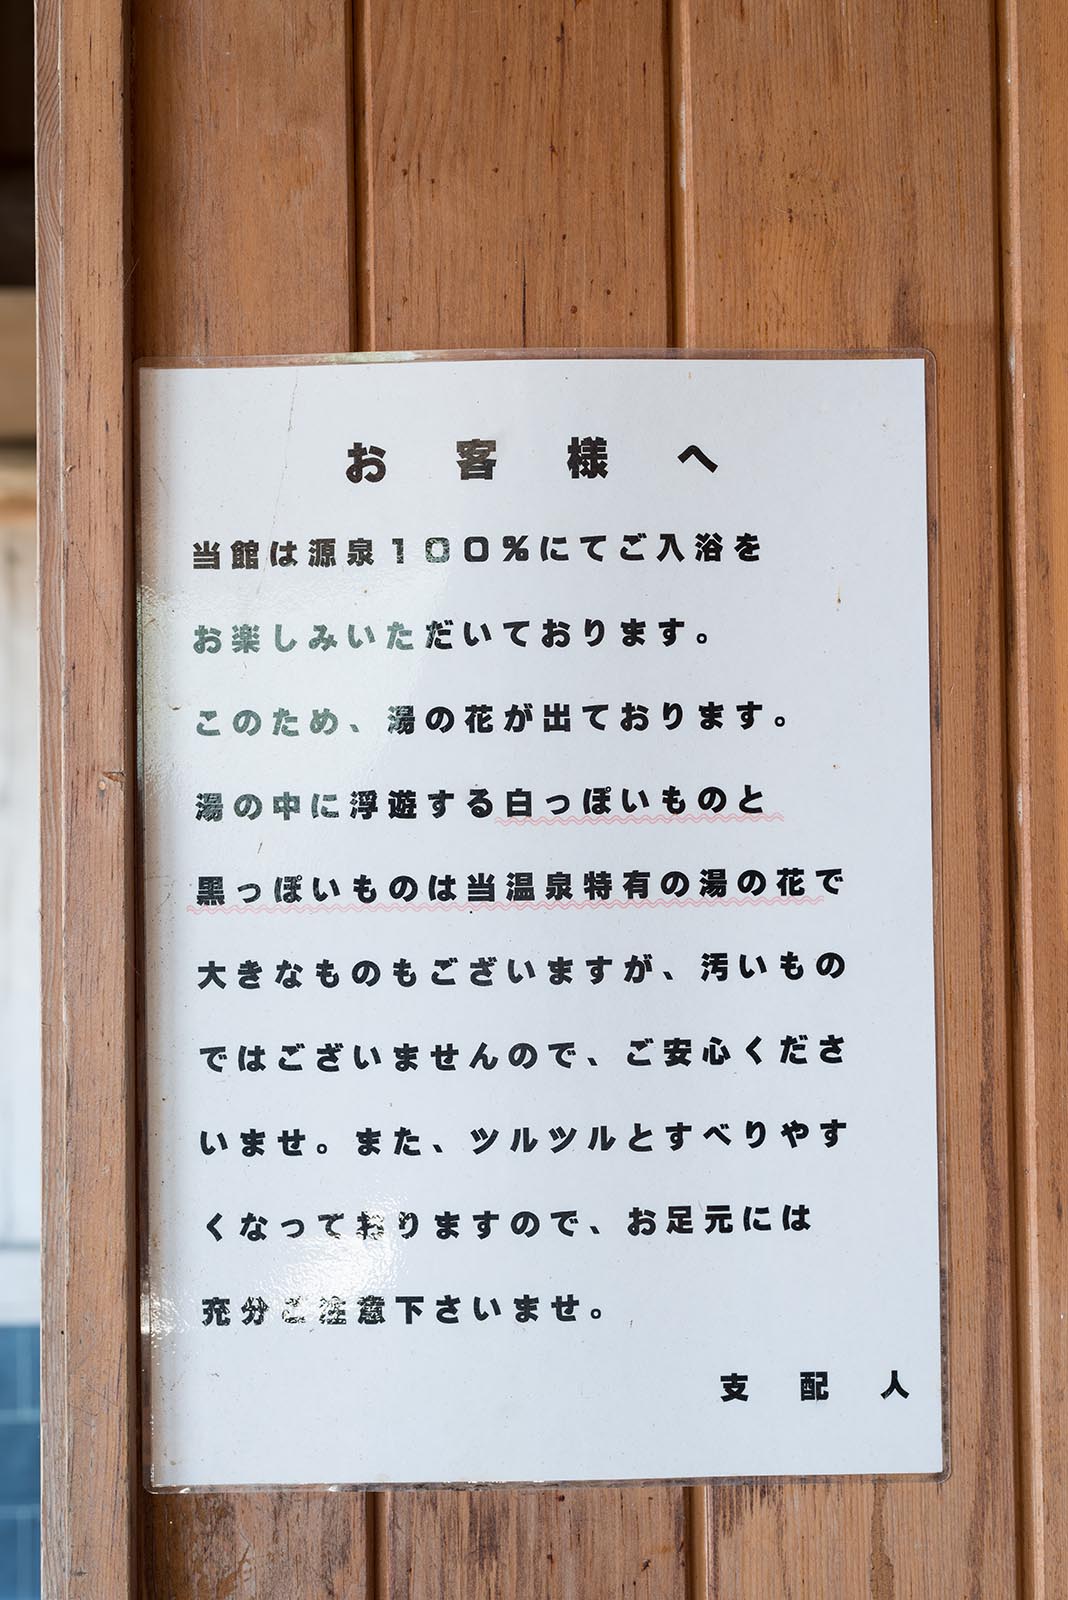 お客様へ
当館は源泉100%にてご入浴を
お楽しみいただいております。
このため、湯の花が出ております。
湯の中に浮遊する白っぽいものと
黒っぽいものは当温泉特有の湯の花で
大きなものもございますが、汚いもの
ではございませんので、ご安心くださ
いませ。また、ツルツルとすべりやす
くなっておりますので、お足元には
充分ご注意下さいませ。
支配人